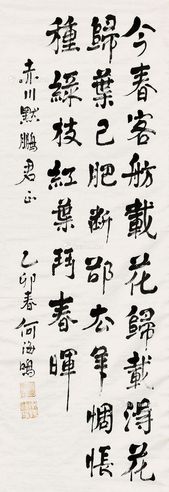 今春客舫載花歸載得花
歸葉已肥斷部去年惆悵
種綠枝紅葉鬥春暉
赤川默鵬君正
乙卯春何海鳴